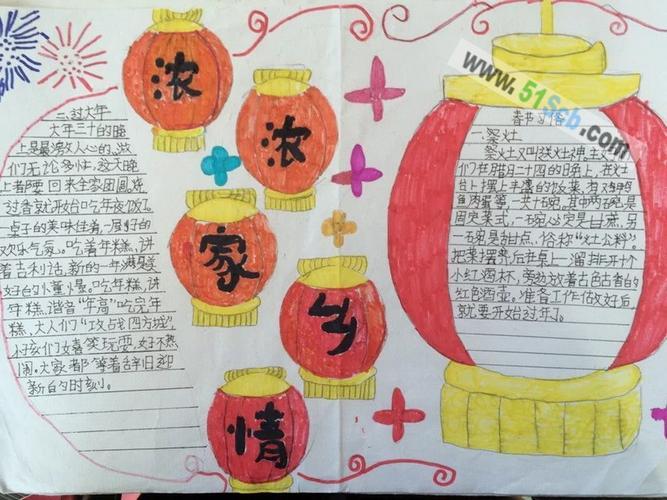 浓
浓
家
乡
情
二、过大年
大年三十的晚
上是最激动人心的。
们无论多忙，这天晚
上都要回来全家团圆。
过香就开始吃年夜饭了。
桌子的美味佳肴，一屋的
欢乐气氛。吃着年糕，讲
着吉利话，新的一年满是美
好的小董景。吃年糕，讲
年糕，谐音“年高”吃完年
糕，大人们“攻占四方城”，
小孩们嬉笑玩耍，好不热
闹。大家都等着辞旧迎
新的时刻。
春节习俗
一祭灶
祭灶又叫送灶神。
们在腊月二十四的日，在灶
台上摆上丰盛的饭菜。有鸡鸭
鱼肉蛋等，一共十碗，其中两碗是
固定菜式，一碗必定是甘蔗，另
一碗是甜点，俗称“灶公料”。
把菜摆齐后在桌上一溜排开十个
小红酒杯，旁边放着古色古香的
红色酒壶。准备工作做好后，
就要开始过年了。
www.51Scb.com